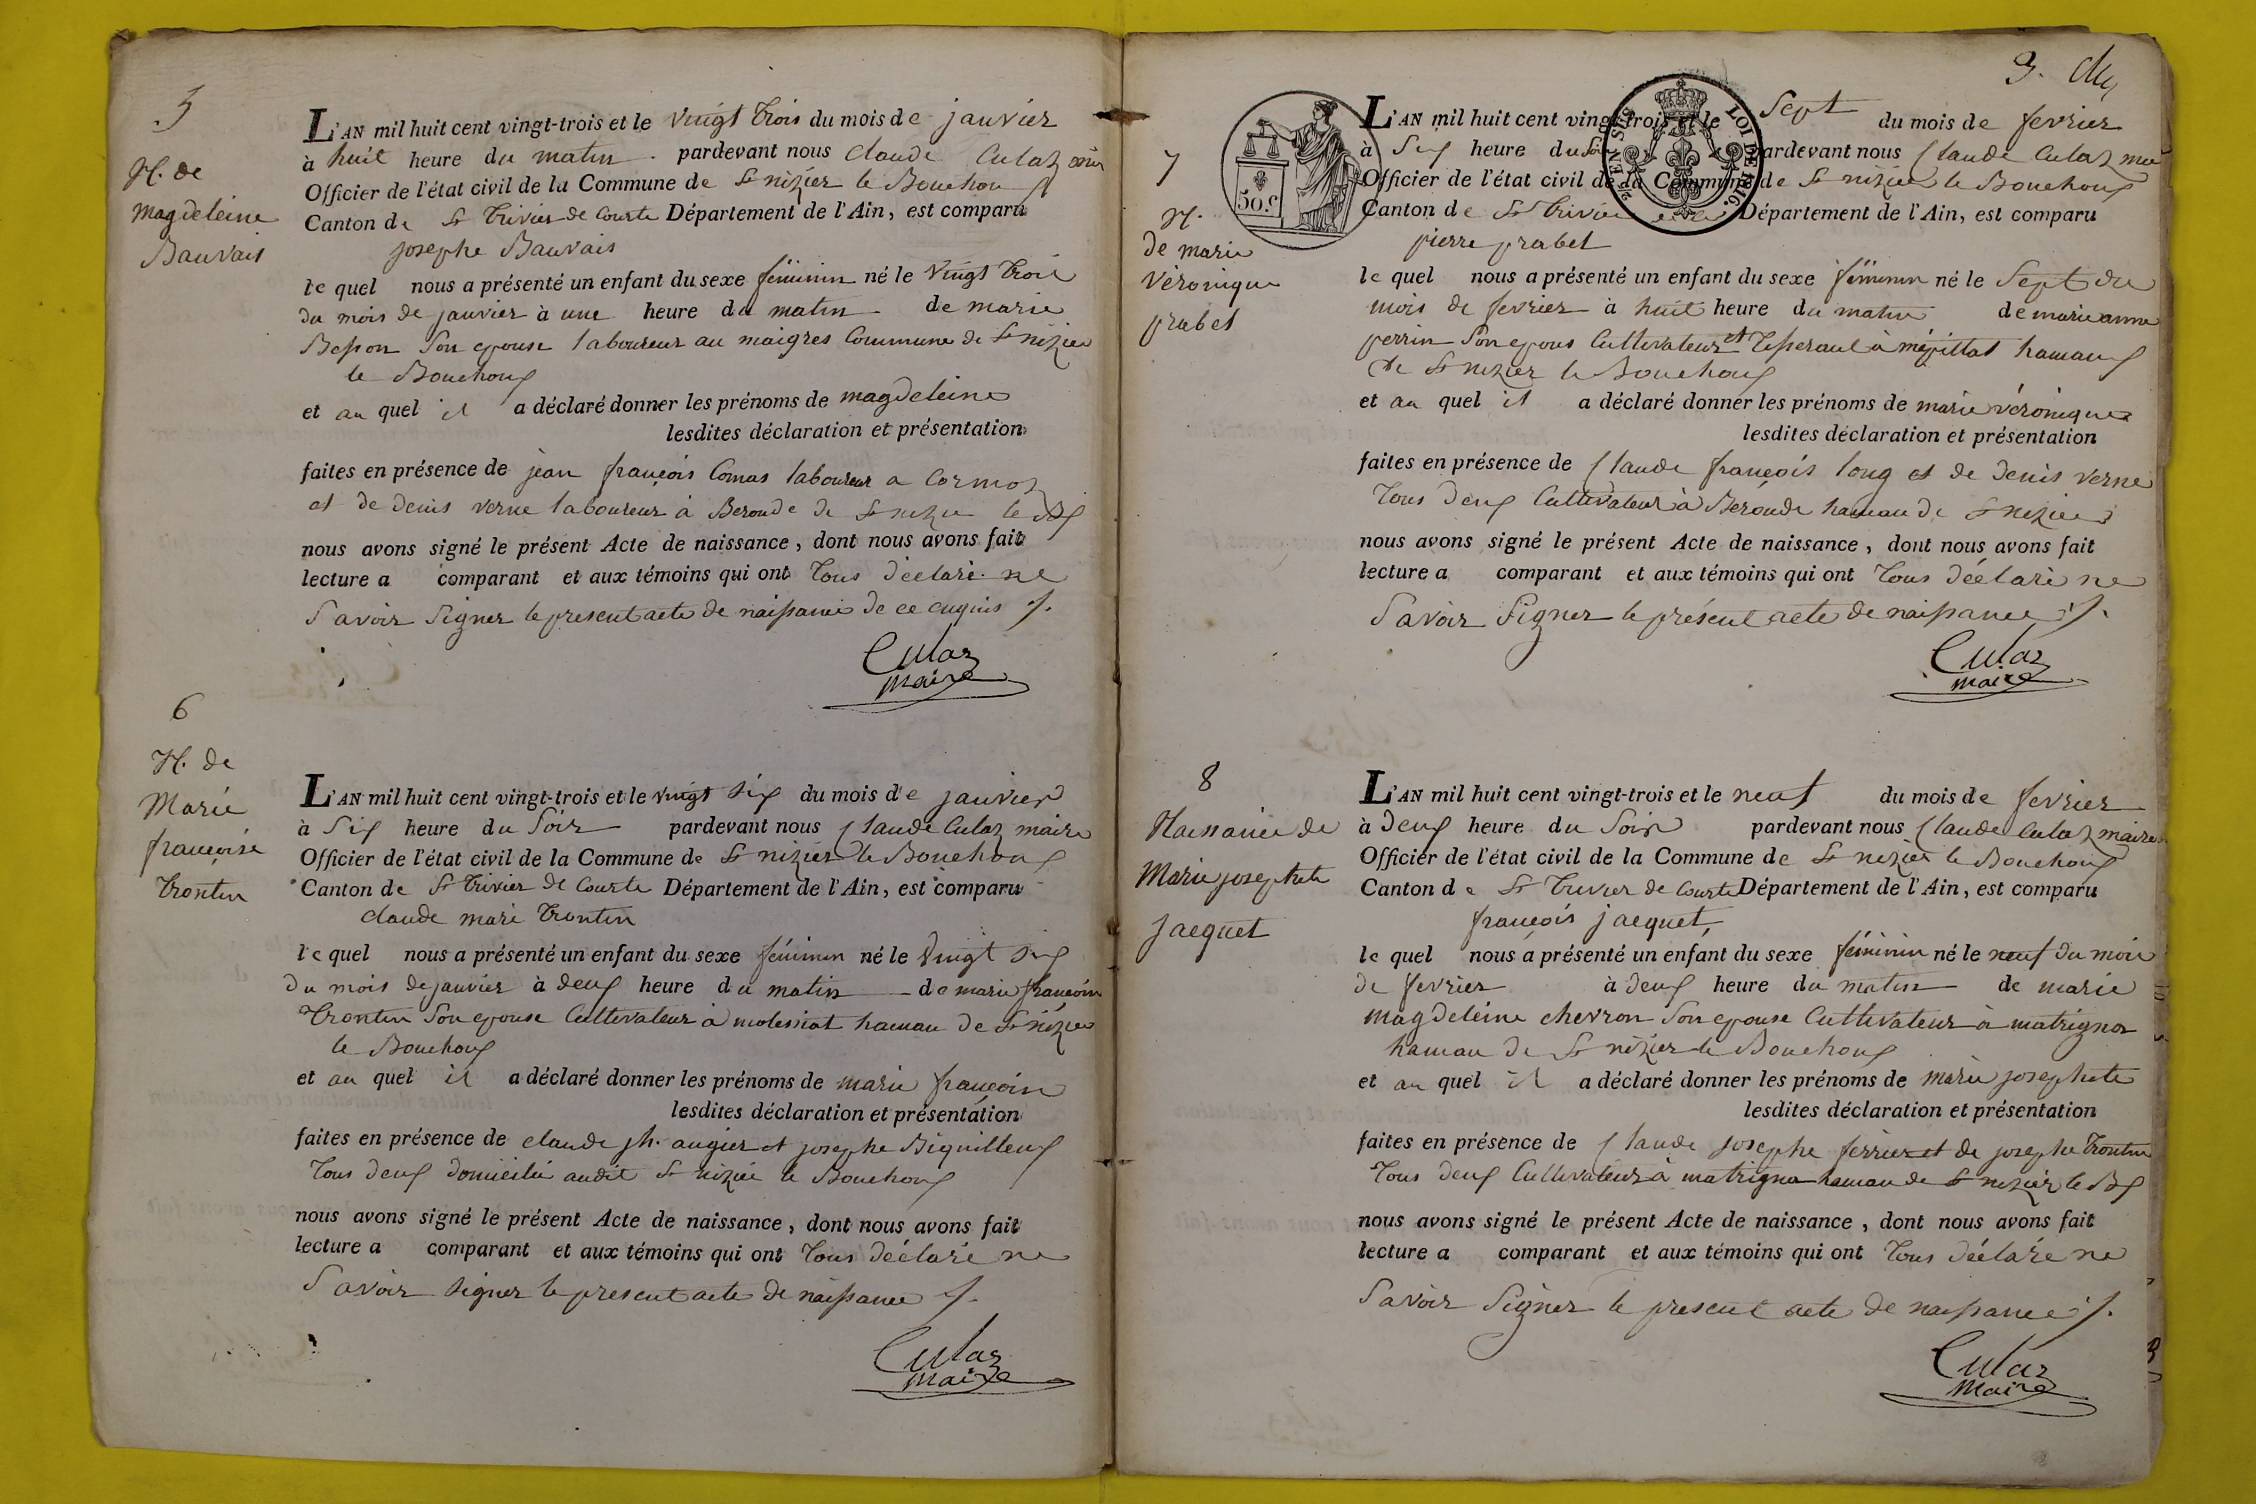 5
N. de
magdeleine
Bauvais
L'AN mil huit cent vingt-trois et le vingt trois du mois de janvier
à huit heure du matin pardevant nous claude Culaz maire
Officier de l'état civil de la Commune de St nizier le Bouchoux
Canton de St trivier de Courte Département de l'Ain, est comparu
josephe Bauvais
le quel nous a présenté un enfant du sexe féminin né le vingt trois
du mois de janvier à une heure du matin de marie
Besson Son epouse laboureur au maigres Commune de St nizier
le Bouchoux
et au quel il a déclaré donner les prénoms de magdeleine
lesdites déclaration et présentation
faites en présence de jean françois Comas laboureur a Cormoz
et de denis verne laboureur à Beroude de St nizier le Bx
nous avons signé le présent Acte de naissance, dont nous avons fait
lecture a comparant et aux témoins qui ont tous déclaré ne
Savoir Signer le présent acte de naissance de ce enquis ./.
Culaz
maire
6
N. de
Marie
françoise
trontin
L'AN mil huit cent vingt-trois et le vingt six du mois de janvier
à Six heure du Soir pardevant nous Claude Culaz maire
Officier de l'état civil de la Commune de St nizier le Bouchoux
Canton de St trivier de Courte Département de l'Ain, est comparu
claude marie trontin
le quel nous a présenté un enfant du sexe féminin né le vingt six
du mois de janvier à deux heure du matin de marie françoise
trontin Son epouse Cultivateur à molessiat hamau de St nizier
le Bouchoux
et au quel il a déclaré donner les prénoms de marie françoise
lesdites déclaration et présentation
faites en présence de claude jh. augier et josephe Biguilleux
tous deux domicilié audit St nizié le Bouchoux
nous avons signé le présent Acte de naissance, dont nous avons fait
lecture a comparant et aux témoins qui ont tous déclaré ne
Savoir signer le présent acte de naissance ./.
Culaz
maire
3.
50.C
2/10 EN SUS LOI DE 1816.
7
N.
de marie
véronique
prabel
L'AN mil huit cent vingt-trois et le Sept du mois de fevrier
à Six heure du Soir pardevant nous Claude Culaz
Officier de l'état civil de la Commune de St nizier le Bouchoux
Canton de St trivier Département de l'Ain, est comparu
pierre prabel
le quel nous a présenté un enfant du sexe féminin né le Sept du
mois de fevrier à huit heure du matin de marie anne
perrin Son epous Cultivateur et tisseraul à mépillat hamaux
de St nizier le Bouchoux
et au quel il a déclaré donner les prénoms de marie véronique
lesdites déclaration et présentation
faites en présence de Claude françois long et de denis verne
tous deux Cultivateur à Beroude hamau de St nizier
nous avons signé le présent Acte de naissance, dont nous avons fait
lecture a comparant et aux témoins qui ont tous déclaré ne
Savoir Signer le présent acte de naissance ./.
Culaz
maire
8
Naissance de
Marie josephete
jacquet
L'AN mil huit cent vingt-trois et le neuf du mois de fevrier
à deux heure du Soir pardevant nous Claude Culaz maire
Officier de l'état civil de la Commune de St nizier le Bouchoux
Canton de St trivier de Courte Département de l'Ain, est comparu
françois jacquet
le quel nous a présenté un enfant du sexe féminin né le neuf du mois
de fevrier à deux heure du matin de marie
magdeleine chevron Son epouse Cultivateur à matrigna
hamau de St nizier le Bouchoux
et au quel il a déclaré donner les prénoms de marie josephete
lesdites déclaration et présentation
faites en présence de Claude josephe ferrier et de josephe trontin
tous deux Cultivateur à matrigna hamau de St nizier le Bx
nous avons signé le présent Acte de naissance, dont nous avons fait
lecture a comparant et aux témoins qui ont tous déclaré ne
Savoir Signer le présent acte de naissance ./.
Culaz
maire